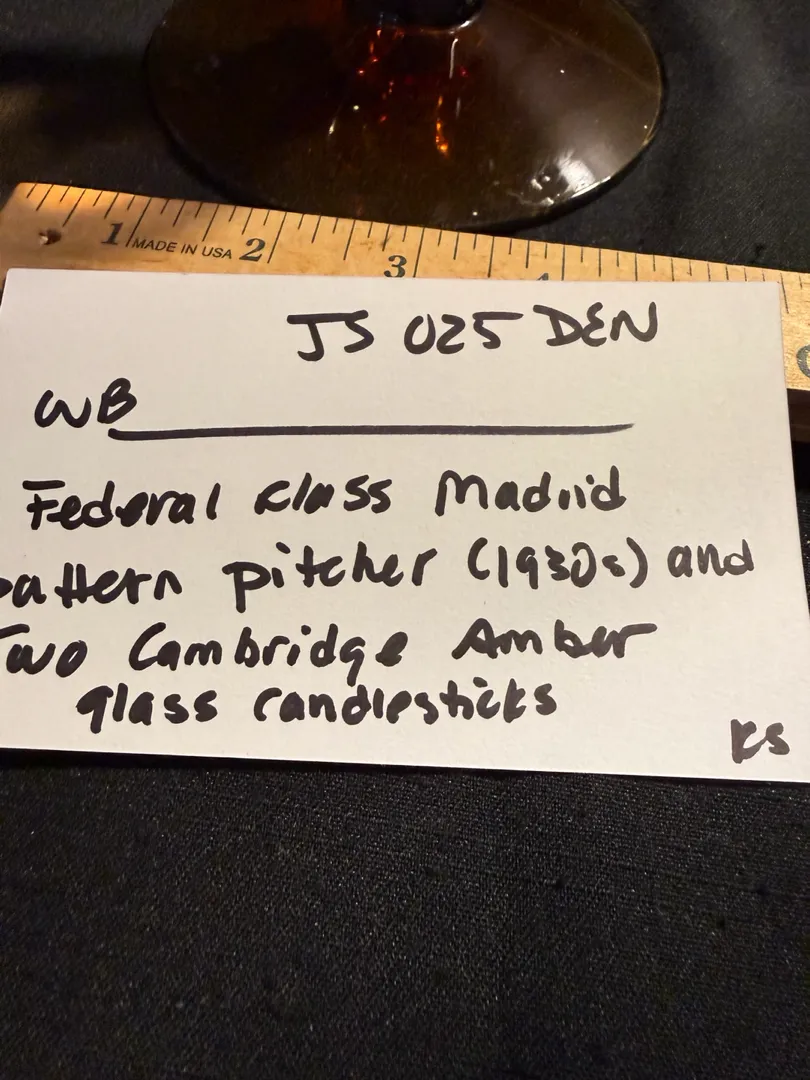 1 MADE IN USA 2 3
JS 025 DEN
WB
Federal class Madrid
pattern pitcher (1930s) and
Two Cambridge Amber
glass candlesticks
KS